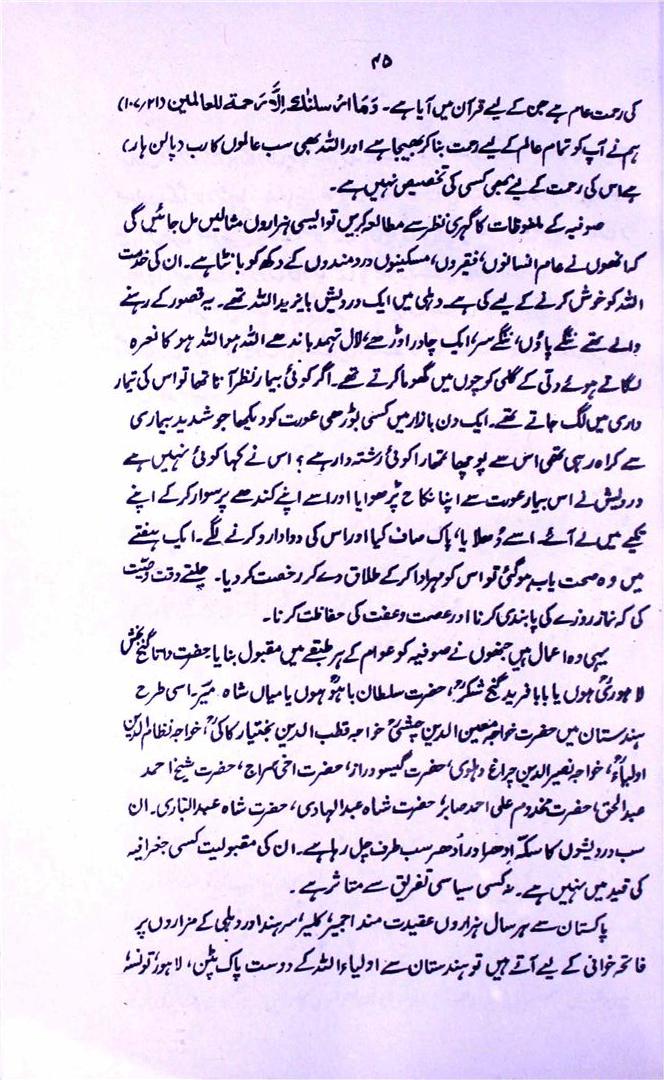 ۴۵
کی رحمت عام ہے جن کے لیے قرآن میں آیا ہے۔ وَمَا ارسلنٰک اِلَّا رحمة للعالمین (۱۰۷/۲۱)
ہم نے آپ کو تمام عالم کے لیے رحمت بنا کر بھیجا ہے اور اللہ بھی سب عالموں کا رب (پالن ہار)
ہے اس کی رحمت کے لیے بھی کسی کی تخصیص نہیں ہے۔
صوفیہ کے ملفوظات کا گہری نظر سے مطالعہ کریں تو ایسی ہزاروں مثالیں مل جائیں گی
کہ انھوں نے عام انسانوں، فقیروں، مسکینوں دردمندوں کے دکھ کو بانٹا ہے۔ ان کی خدمت
اللہ کو خوش کرنے کے لیے کی ہے۔ دہلی میں ایک درویش بایزید اللہ تھے۔ یہ قصور کے رہنے
والے تھے ننگے پاؤں، ننگے سر، ایک چادر اوڑھے، لال تہمد باندھے اللہ ہو اللہ ہو کا نعرہ
لگاتے ہوئے دلّی کے گلی کوچوں میں گھوما کرتے تھے۔ اگر کوئی بیمار نظر آتا تھا تو اس کی تیمار
داری میں لگ جاتے تھے۔ ایک دن بازار میں کسی بوڑھی عورت کو دیکھا جو شدید بیماری
سے کراہ رہی تھی اس سے پوچھا تمھارا کوئی رشتہ دار ہے؟ اس نے کہا کوئی نہیں ہے
درویش نے اس بیمار عورت سے اپنا نکاح پڑھوایا اور اسے اپنے کندھے پر سوار کرکے اپنے
تکیے میں لے آئے۔ اسے دُھلایا، پاک صاف کیا اور اس کی دوا دارو کرنے لگے۔ ایک ہفتے
میں وہ صحت یاب ہو گئی تو اس کو مہر ادا کرکے طلاق دے کر رخصت کر دیا۔ چلتے وقت وصیت
کی کہ نماز روزے کی پابندی کرنا اور عصمت و عفت کی حفاظت کرنا۔
یہی وہ اعمال ہیں جنھوں نے صوفیہ کو عوام کے ہر طبقے میں مقبول بنایا۔ حضرت داتا گنج بخش
لاہوریؒ ہوں یا بابا فرید گنج شکرؒ، حضرت سلطان باہوؒ ہوں یا میاں شاہ میرؒ۔ اسی طرح
ہندستان میں حضرت خواجہ معین الدین چشتیؒ خواجہ قطب الدین بختیار کاکیؒ، خواجہ نظام الدین
اولیاءؒ، خواجہ نصیر الدین چراغ دہلوی، حضرت گیسو دراز، حضرت اخی سراج، حضرت شیخ احمد
عبد الحق، حضرت مخدوم علی احمد صابر، حضرت شاہ عبد الہادی، حضرت شاہ عبد الباری۔ ان
سب درویشوں کا سکّہ اِدھر اور اُدھر سب طرف چل رہا ہے۔ ان کی مقبولیت کسی جغرافیہ
کی قید میں نہیں ہے۔ نہ کسی سیاسی تفریق سے متاثر ہے۔
پاکستان سے ہر سال ہزاروں عقیدت مند اجمیر، کلیر، سرہند اور دہلی کے مزاروں پر
فاتحہ خوانی کے لیے آتے ہیں تو ہندستان سے اولیاء اللہ کے دوست پاک پٹن، لاہور، تونسہ،